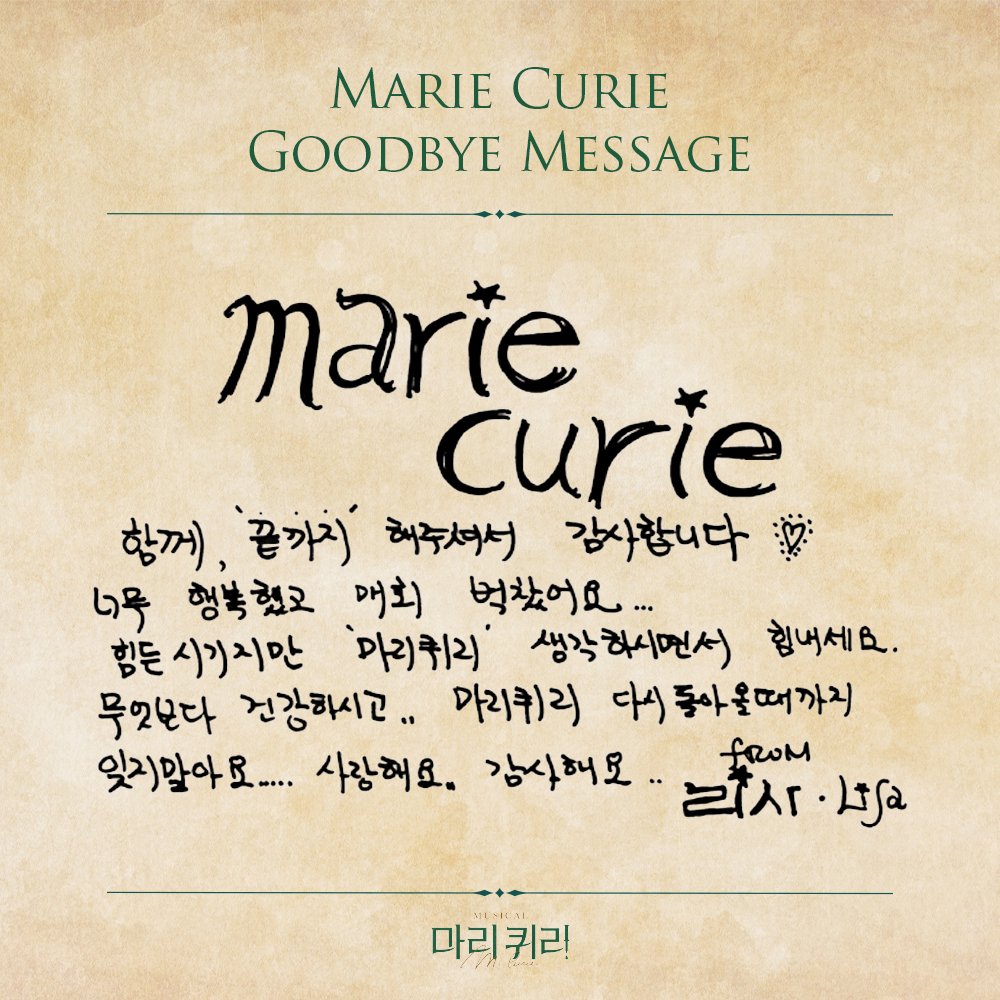 MARIE CURIE
GOODBYE MESSAGE
marie
curie
함께, '끝까지' 해주셔서 감사합니다 ♡
너무 행복했고 매회 벅찼어요...
힘든 시기지만 '마리퀴리' 생각하시면서 힘내세요.
무엇보다 건강하시고.. 마리퀴리 다시 돌아올때까지
잊지말아요..... 사랑해요.. 감사해요..
from
리사·Lisa
MUSICAL
마리 퀴리